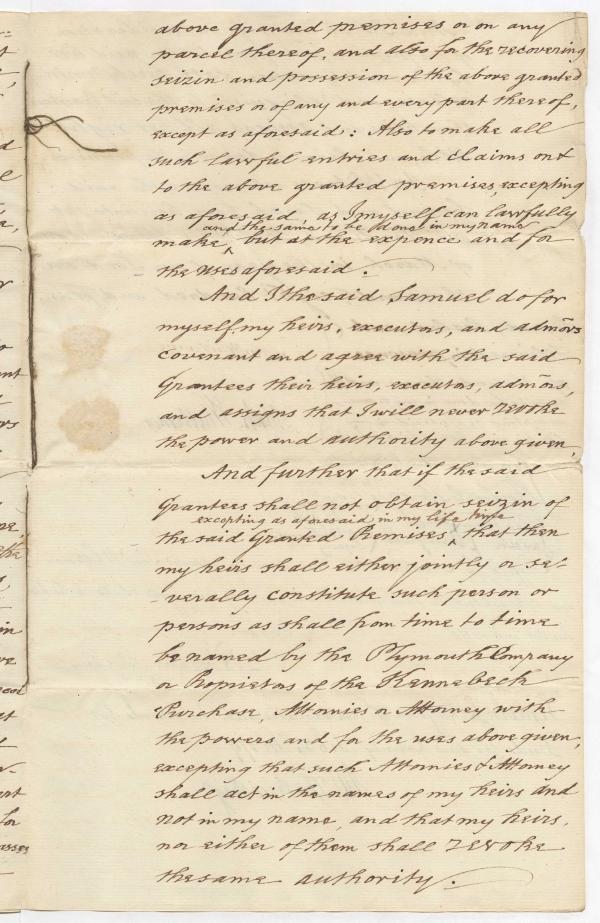 above granted premises or on any
parcel thereof, and also for the recovering
seizin and possession of the above granted
premises or of any and every part thereof,
except as aforesaid: Also to make all
such lawful entries and claims on &
to the above granted premises, excepting
as aforesaid, as I myself can lawfully
and the same to be done in my name
make ‸ but at the expence and for
the uses aforesaid.
And I the said Samuel do for
myself, my heirs, executors, and adm̃ors
covenant and agree with the said
Grantees their heirs, executors, adm̃ors,
and assigns that I will never revoke
the power and authority above given,
And further that if the said
Grantees shall not obtain seizin of
excepting as aforesaid in my life time
the said Granted Premises ‸ that then
my heirs shall either jointly or se-
-verally constitute such person or
persons as shall from time to time
be named by the Plymouth Company
or Proprietors of the Kennebeck
Purchase, Attornies or Attorney with
the powers and for the uses above given,
excepting that such Attornies & Attorney
shall act in the names of my heirs and
not in my name, and that my heirs,
nor either of them shall revoke
the same authority.